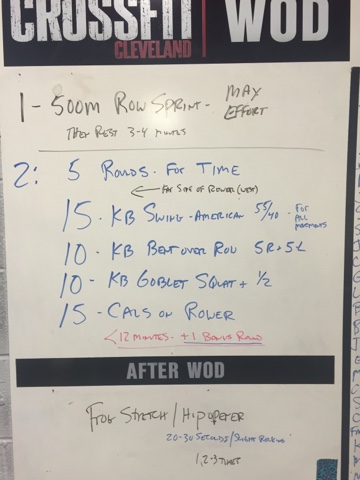 CROSSFIT
CLEVELAND
WOD
1 - 500m Row Sprint - MAX EFFORT
Then Rest 3-4 minutes
2: 5 Rounds - For Time
← Far Side of Rower (West)
15 - KB Swing - American 55/40 - For All Movements
10 - KB Bent over Row 5R+5L
10 - KB Goblet Squat + 1/2
15 - Cals on Rower
<12 minutes - +1 Bonus Round
AFTER WOD
Frog Stretch / Hip opener
20-30 seconds/
1, 2-3 times